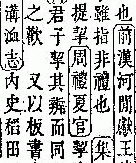 也前漢河間獻王
雖指非禮也 集
提挈周禮夏官挈
君子挈其而同
之歎 又以板書
溝洫志內史稻田